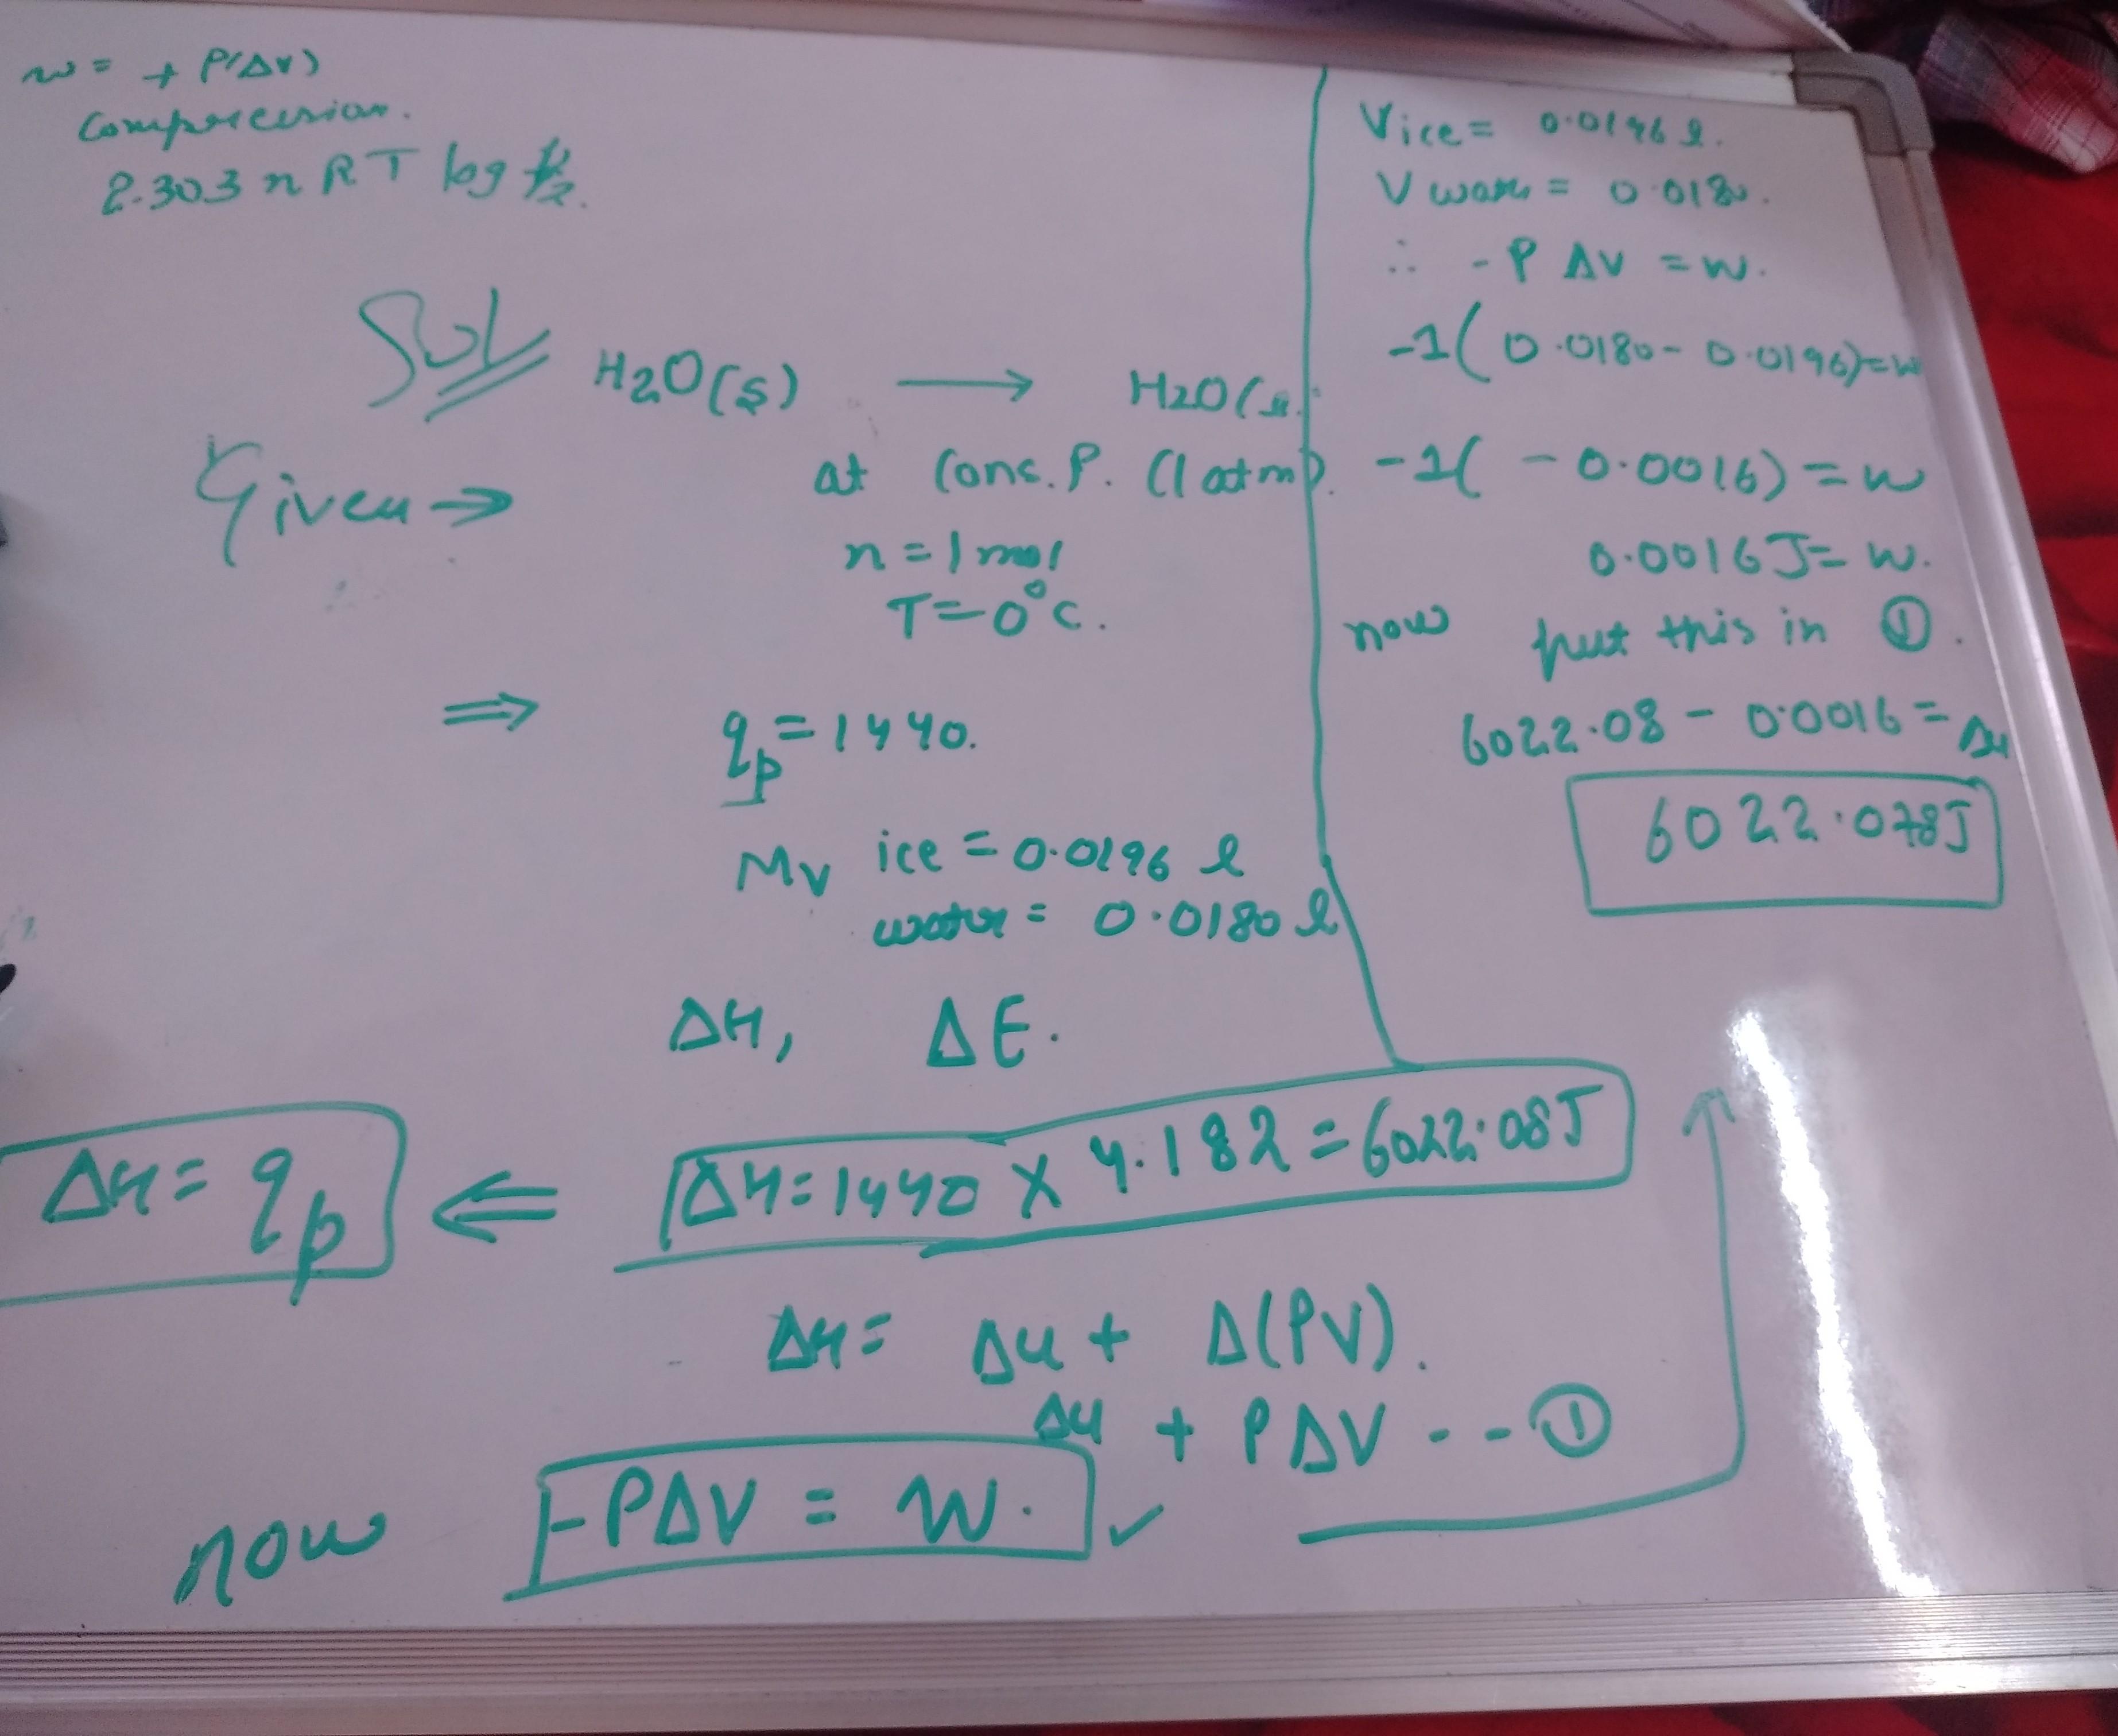 w = + P(ΔV)
Comprecesion.
2.303 n R T log
Sol
H2O(s) ⟶ H2O(
Given →
at Cons. P. (1 atm).
n = 1 mol
T = 0°C.
⇒ qp = 1440.
Mv ice = 0.0196 l
water = 0.0180 l
ΔH, ΔE.
ΔH = qp ⇐ ΔH = 1440 × 4.182 = 6022.08J
ΔH = Δu + Δ(PV).
Δu + PΔV - - ①
now -PΔV = W. ✓
Vice = 0.0196 l.
V water = 0.0180.
∴ -P ΔV = W.
-1(0.0180 - 0.0196) = W
-1( - 0.0016) = W
0.0016 J = W.
now put this in ①.
6022.08 - 0.0016 = Δu
6022.078J